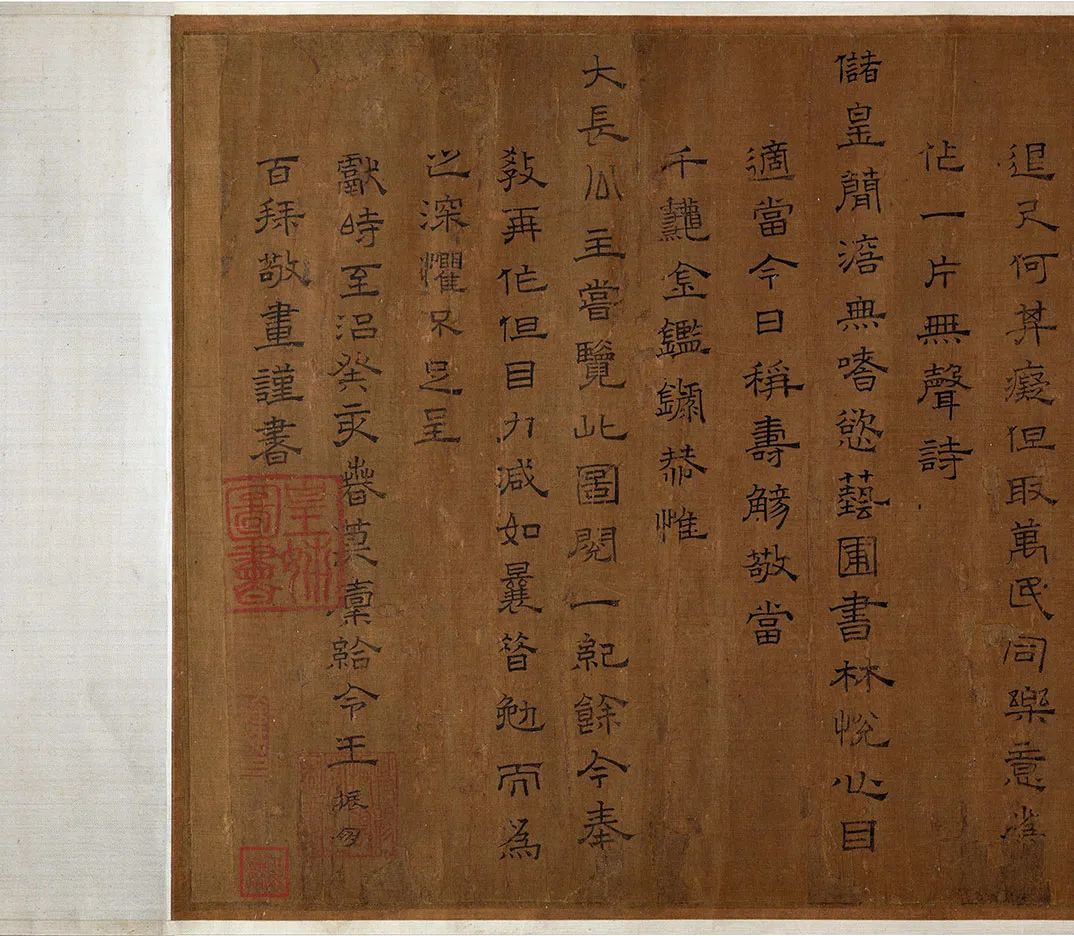 退尺何其癡但取萬民同樂意雀
作一片無聲詩
儲皇簡澹無嗜慾藝圃書林悅心目
適當今日稱壽觴敬當
千龝金鑑錄恭惟
大長公主嘗覽此圖閱一紀餘今奉
教再作但目力減如曩昔勉而為
之深懼不足呈
獻時至治癸亥春莫廩給令王
振鵬
百拜敬畫謹書
皇姊圖書